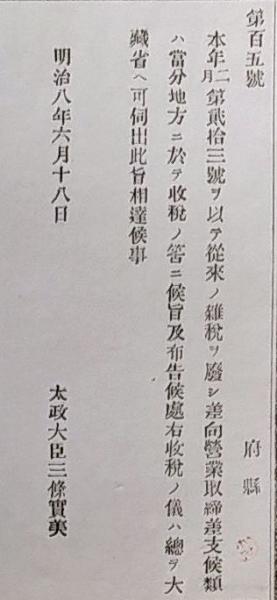 第百五號
府縣
本年二月第貳拾三號ヲ以テ從來ノ雜稅ヲ廢シ差向營業取締差支候類
ハ當分地方ニ於テ收稅ノ筈ニ候旨及布告候處右收稅ノ儀ハ總テ大
藏省ヘ可伺出此旨相達候事
明治八年六月十八日
太政大臣三條實美